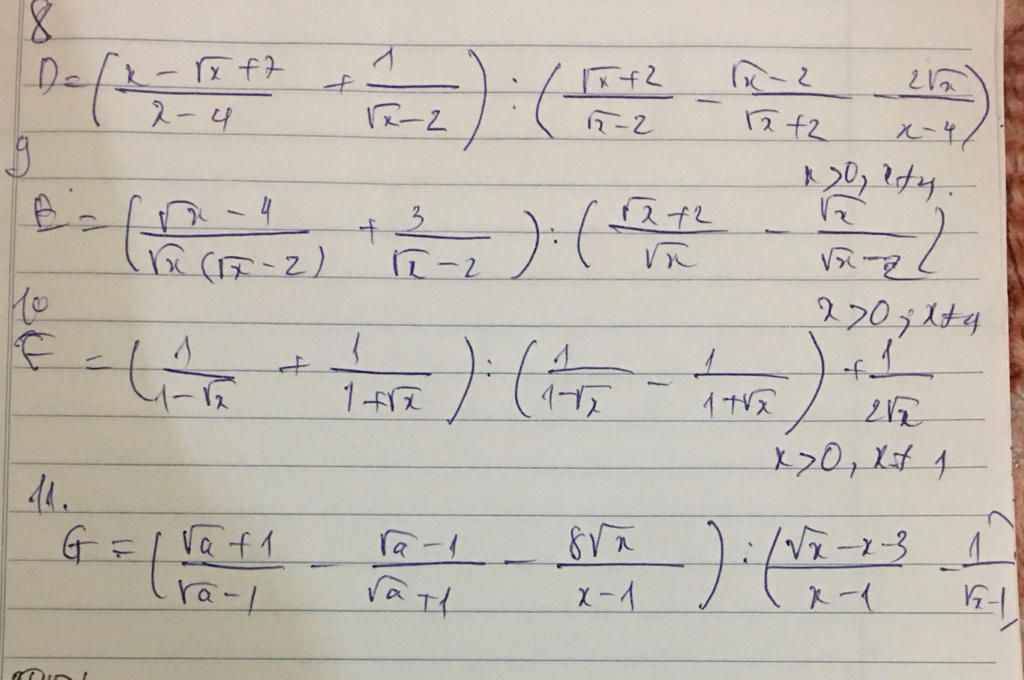 8
D = ( (x - √x + 7)/(x - 4) + 1/(√x - 2) ) : ( (√x + 2)/(√x - 2) - (√x - 2)/(√x + 2) - 2√x/(x - 4) )
x > 0, x ≠ 4.
9
B = ( (√x - 4)/(√x (√x - 2)) + 3/(√x - 2) ) : ( (√x + 2)/√x - √x/(√x - 2) )
x > 0, x ≠ 4
10
E = ( 1/(1 - √x) + 1/(1 + √x) ) : ( 1/(1 - √x) - 1/(1 + √x) ) + 1/(2√x)
x > 0, x ≠ 1
11.
G = ( (√a + 1)/(√a - 1) - (√a - 1)/(√a + 1) - 8√x/(x - 1) ) : ( (√x - x - 3)/(x - 1) - 1/(√x - 1) )